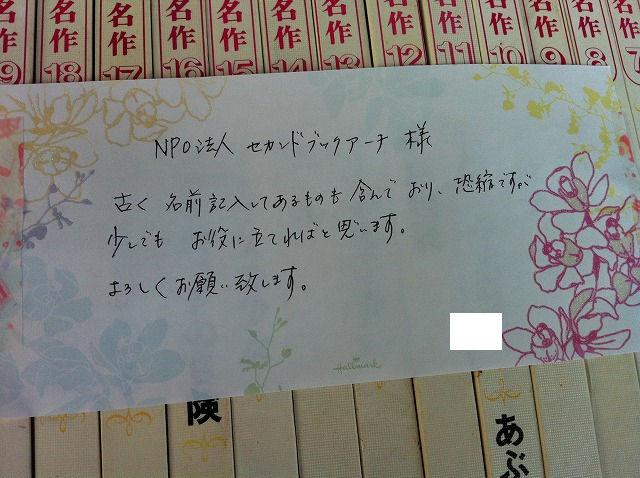 名作 名作 名作 名作 名作 名作 名作 名作 名作 名作 名作 名作
19 18 17 16 15 14 13 12 11 10 9 8 7
NPO法人 セカンドブックアーチ 様
古く 名前記入してあるものも含んでおり、恐縮ですが
少しでも お役に立てればと思います。
よろしくお願い致します。
Hallmark
険
あぶ